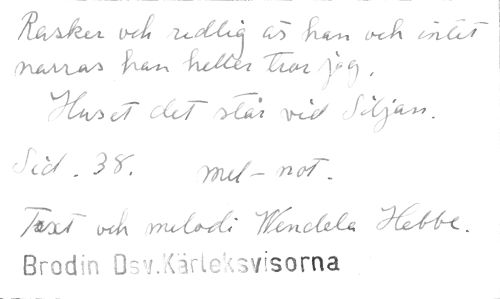 Rasker och redlig är han och intet
narras han heller tror jag.
Huset det står vid Siljan.
Sid. 38. mel-not.
Text och melodi Wendela Hebbe.
Brodin Osv.Kärleksvisorna